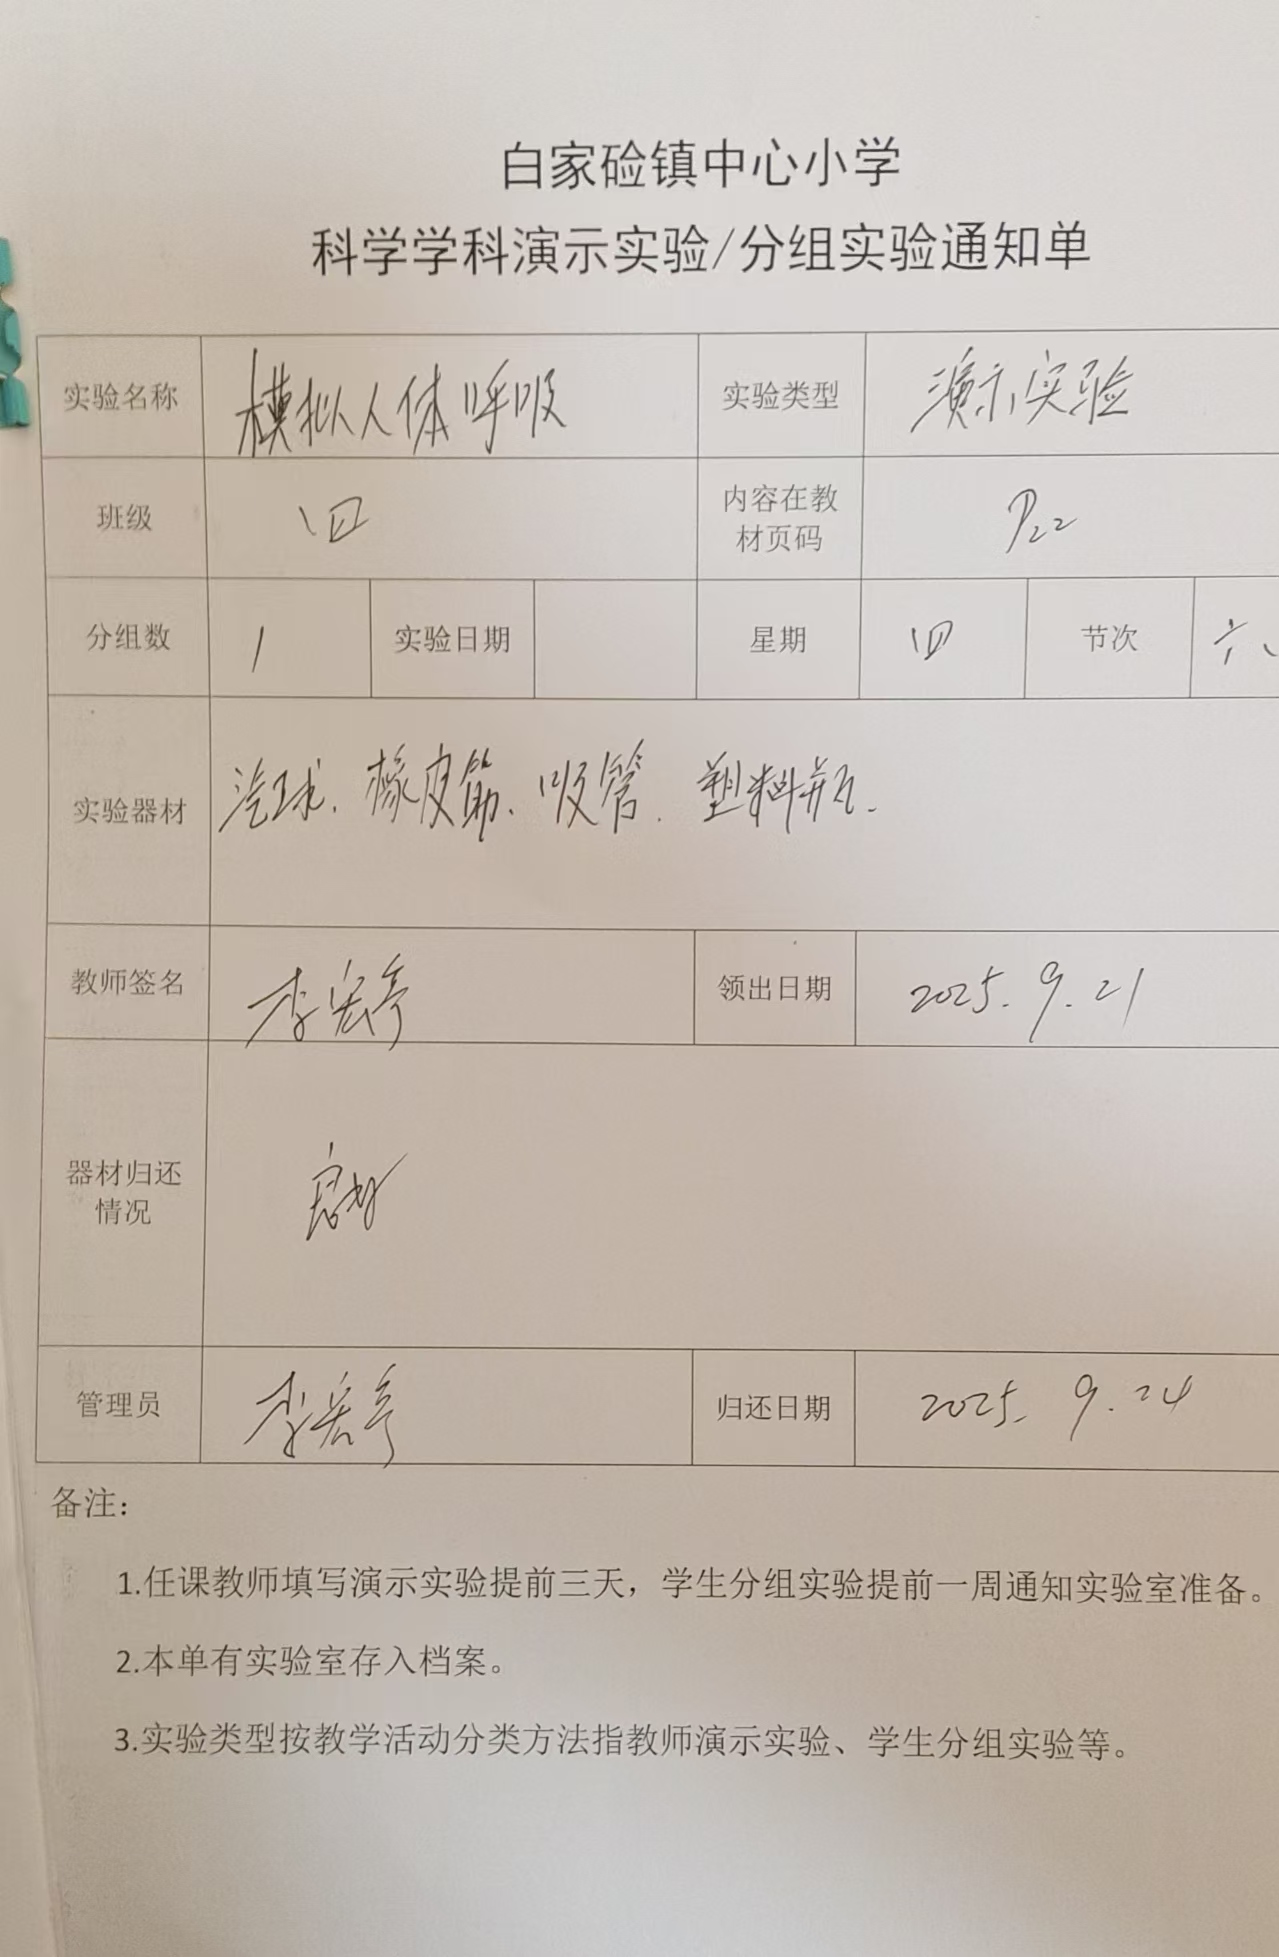 白家硷镇中心小学
科学学科演示实验/分组实验通知单
实验名称 模拟人体呼吸 实验类型 演示实验
班级 四 内容在教材页码 P22
分组数 1 实验日期 星期 四 节次 六、
实验器材 汽球、橡皮筋、吸管、塑料瓶.
教师签名 李宏亭 领出日期 2025.9.21
器材归还情况
管理员 李宏亭 归还日期 2025.9.24
备注：
1.任课教师填写演示实验提前三天，学生分组实验提前一周通知实验室准备。
2.本单有实验室存入档案。
3.实验类型按教学活动分类方法指教师演示实验、学生分组实验等。